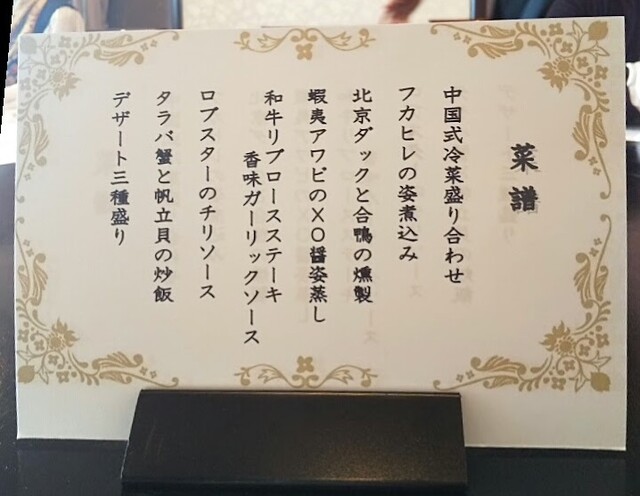 菜譜
中国式冷菜盛り合わせ
フカヒレの姿煮込み
北京ダックと合鴨の燻製
蝦夷アワビのXO醤姿蒸し
和牛リブロースステーキ
香味ガーリックソース
ロブスターのチリソース
タラバ蟹と帆立貝の炒飯
デザート三種盛り